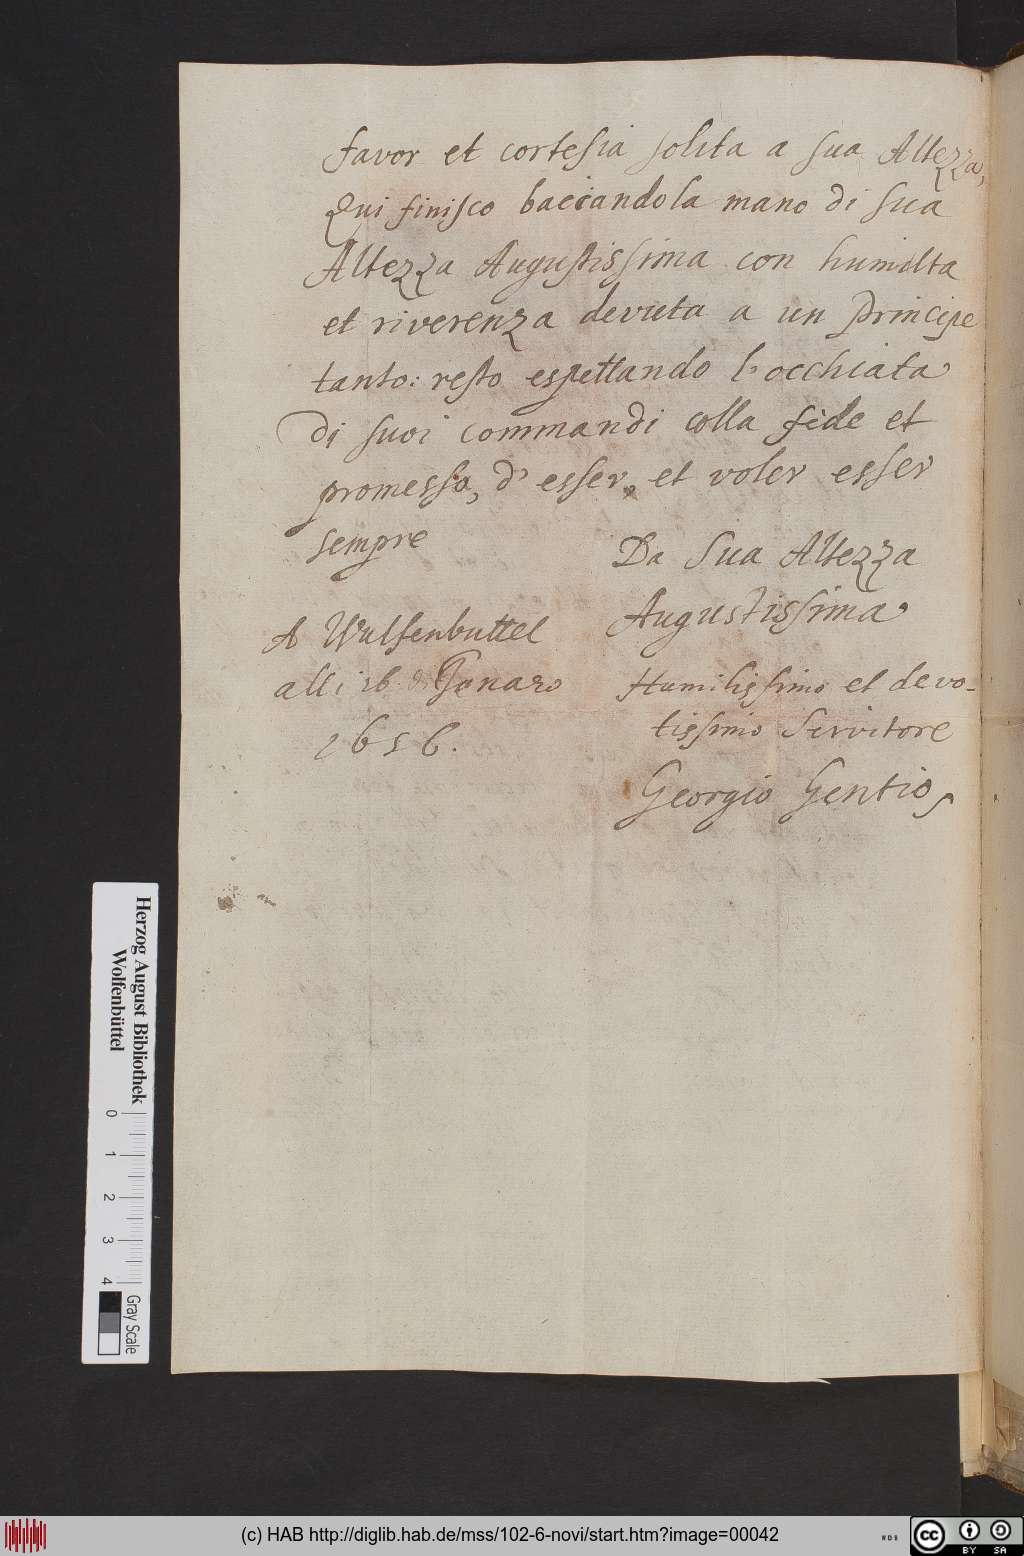 favor et cortesia solita a sua Altezza,
Qui finisco bacciandola mano di sua
Altezza Augustissima con humilta
et riverenza devuta a un Principe
tanto: resto espettando l'occhiata
di suoi commandi colla fède et
promessa, d' esser, et voler esser
sempre
Da Sua Altezza
Augustissima
A Wulfenbuttel
alli 16 di Genaro
1656.
Humilissimo et devo-
tissimo Servitore
Georgio Gentio
Herzog August Bibliothek
Wolfenbüttel
0 1 2 3 4
Gray Scale
(c) HAB http://diglib.hab.de/mss/102-6-novi/start.htm?image=00042
WDB
cc
BY SA